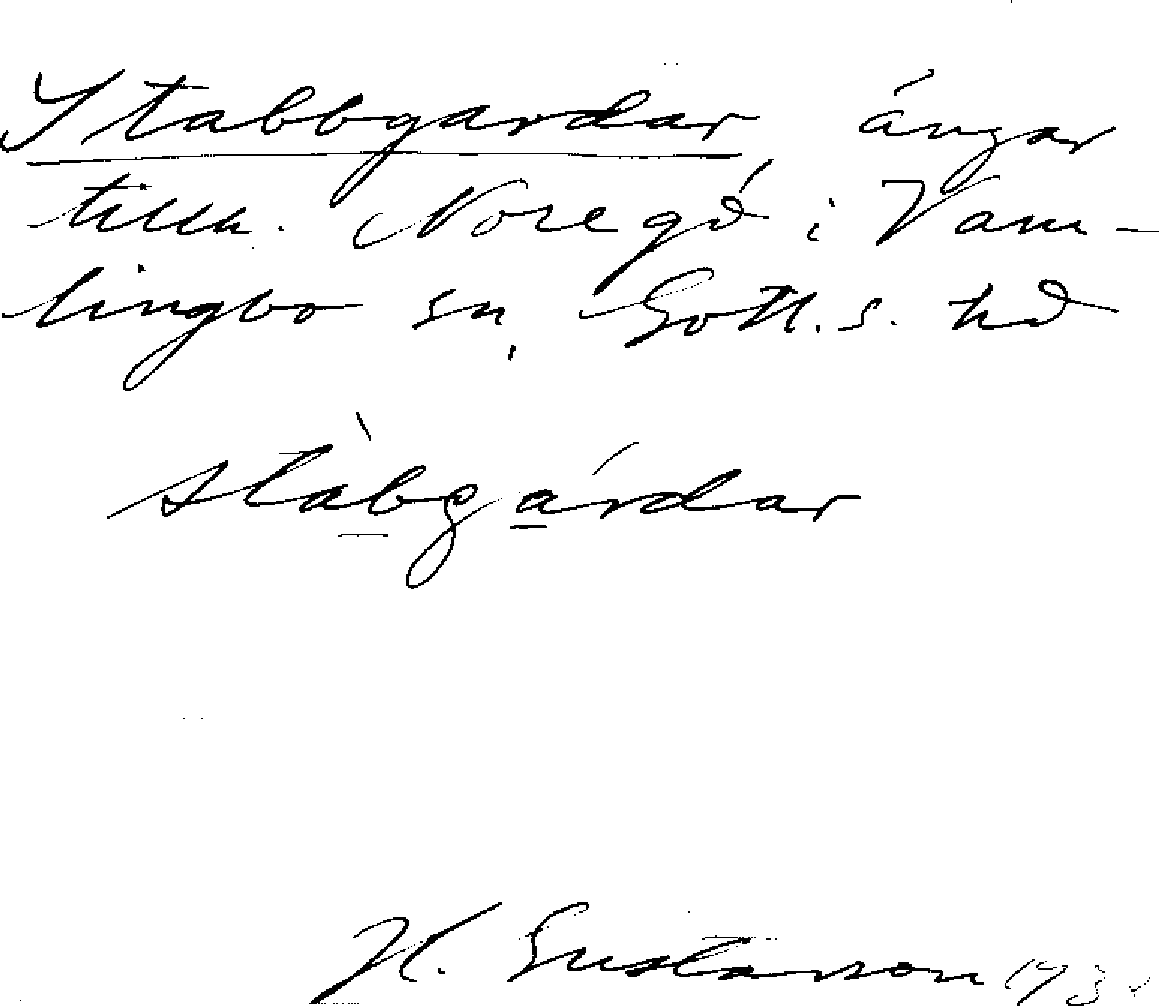 Stabbgardar ängar
tillh. Noregd i Vam-
lingbo sn, Gotl. s. hd
stàbgárdar
H. Gustavson